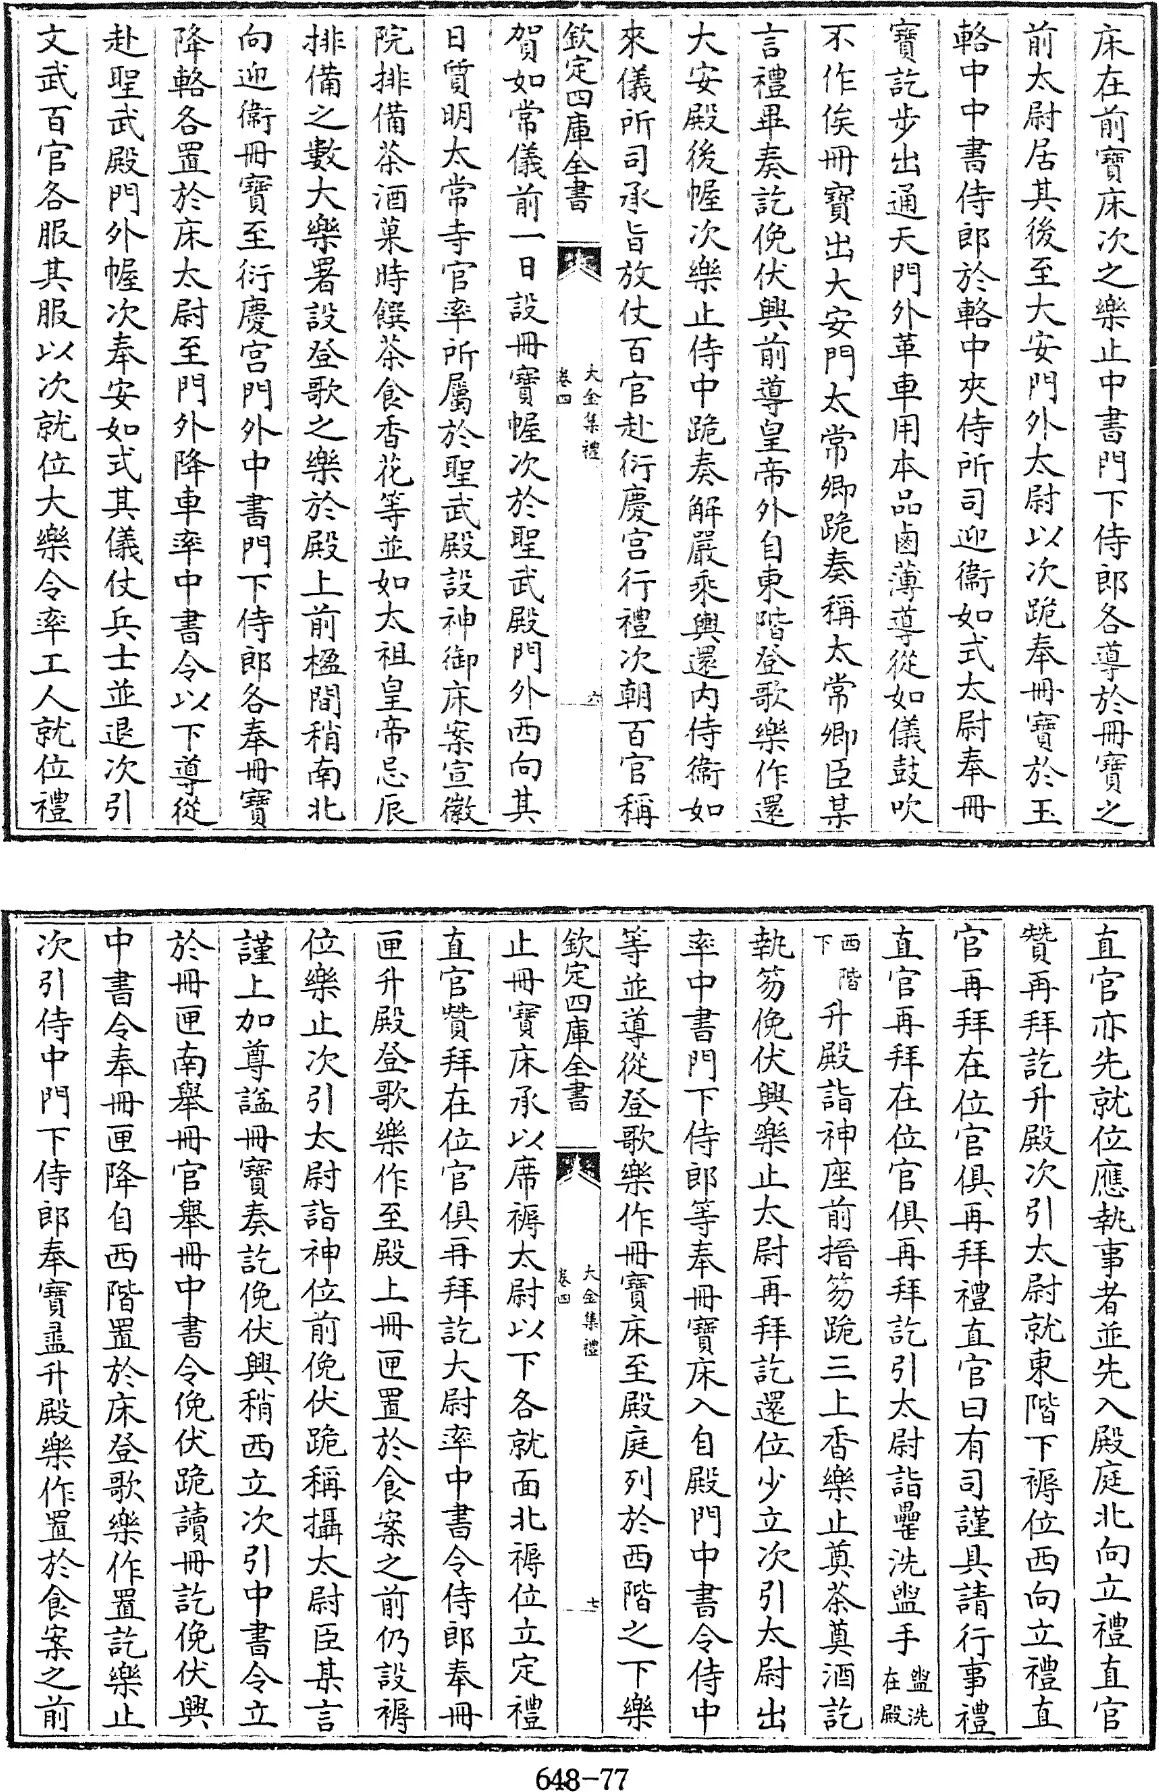 床在前寶床次之樂止中書門下侍郎各導於冊寶之
前太尉居其後至大安門外太尉以次跪奉冊寶於玉
輅中中書侍郎於輅中夾侍所司迎衞如式太尉奉冊
寶訖步出通天門外革車用本品鹵薄導從如儀鼓吹
不作俟冊寶出大安門太常卿跪奏稱太常卿臣某
言禮畢奏訖俛伏興前導皇帝外自東階登歌樂作還
大安殿後幄次樂止侍中跪奏解嚴乘輿還内侍衞如
來儀所司承旨放仗百官赴衍慶宫行禮次朝百官稱
欽定四庫全書
大金集禮
卷四
六
賀如常儀前一日設冊寶幄次於聖武殿門外西向其
日質明太常寺官率所屬於聖武殿設神御床案宣徽
院排備茶酒菓時饌茶食香花等並如太祖皇帝忌辰
排備之數大樂署設登歌之樂於殿上前楹間稍南北
向迎衞冊寶至衍慶宫門外中書門下侍郎各奉冊寶
降輅各置於床太尉至門外降車率中書令以下導從
赴聖武殿門外幄次奉安如式其儀仗兵士並退次引
文武百官各服其服以次就位大樂令率工人就位禮
直官亦先就位應執事者並先入殿庭北向立禮直官
贊再拜訖升殿次引太尉就東階下褥位西向立禮直
官再拜在位官俱再拜禮直官曰有司謹具請行事禮
直官再拜在位官俱再拜訖引太尉詣罍洗盥手盥洗在殿
西階下升殿詣神座前搢笏跪三上香樂止奠茶奠酒訖
執笏俛伏興樂止太尉再拜訖還位少立次引太尉出
率中書門下侍郎等奉冊寶床入自殿門中書令侍中
等並導從登歌樂作冊寶床至殿庭列於西階之下樂
欽定四庫全書
大金集禮
卷四
七
止冊寶床承以席褥太尉以下各就面北褥位立定禮
直官贊拜在位官俱再拜訖大尉率中書令侍郎奉冊
匣升殿登歌樂作至殿上冊匣置於食案之前仍設褥
位樂止次引太尉詣神位前俛伏跪稱攝太尉臣某言
謹上加尊諡冊寶奏訖俛伏興稍西立次引中書令立
於冊匣南舉冊官舉冊中書令俛伏跪讀冊訖俛伏興
中書令奉冊匣降自西階置於床登歌樂作置訖樂止
次引侍中門下侍郎奉寶盝升殿樂作置於食案之前
648-77